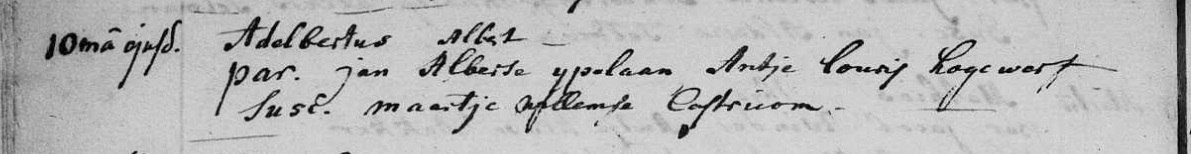 10mā ejusd. Adelbertus Albert
par. jan Alberse ypelaan Antje Louris Hogewerf
Susc. maartje Willemse Castricom.